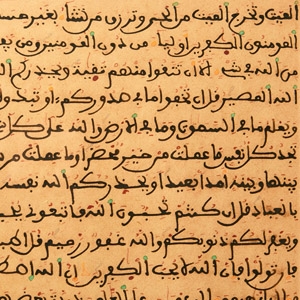 الميت وتخرج الميت من الحي وترزق من تشا بغير حسا
المومنون الكفرين اوليا من دون المومنين ومن
من الله في شي الا ان تتقوا منهم تقية ويحذركم
الله المصير قل ان تخفوا ما في صدوركم او تبدو
ويعلم ما في السموت وما في الارض والله على كل
تجد كل نفس ما عملت من خير محضرا وما عملت من
بينها وبينه امدا بعيدا ويحذركم الله نفسه
بالعباد قل ان كنتم تحبون الله فاتبعوني يح
ويغفر لكم ذنوبكم والله غفور رحيم قل اطي
فان تولوا فان الله لا يحب الكفرين ان الله اصط